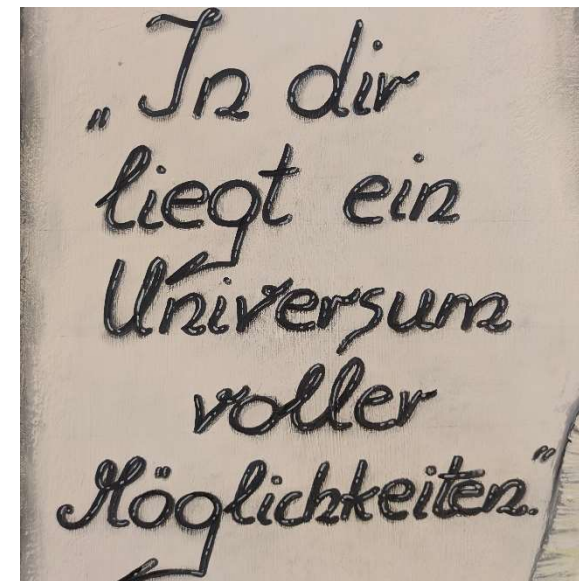 „In dir
liegt ein
Universum
voller
Möglichkeiten.“